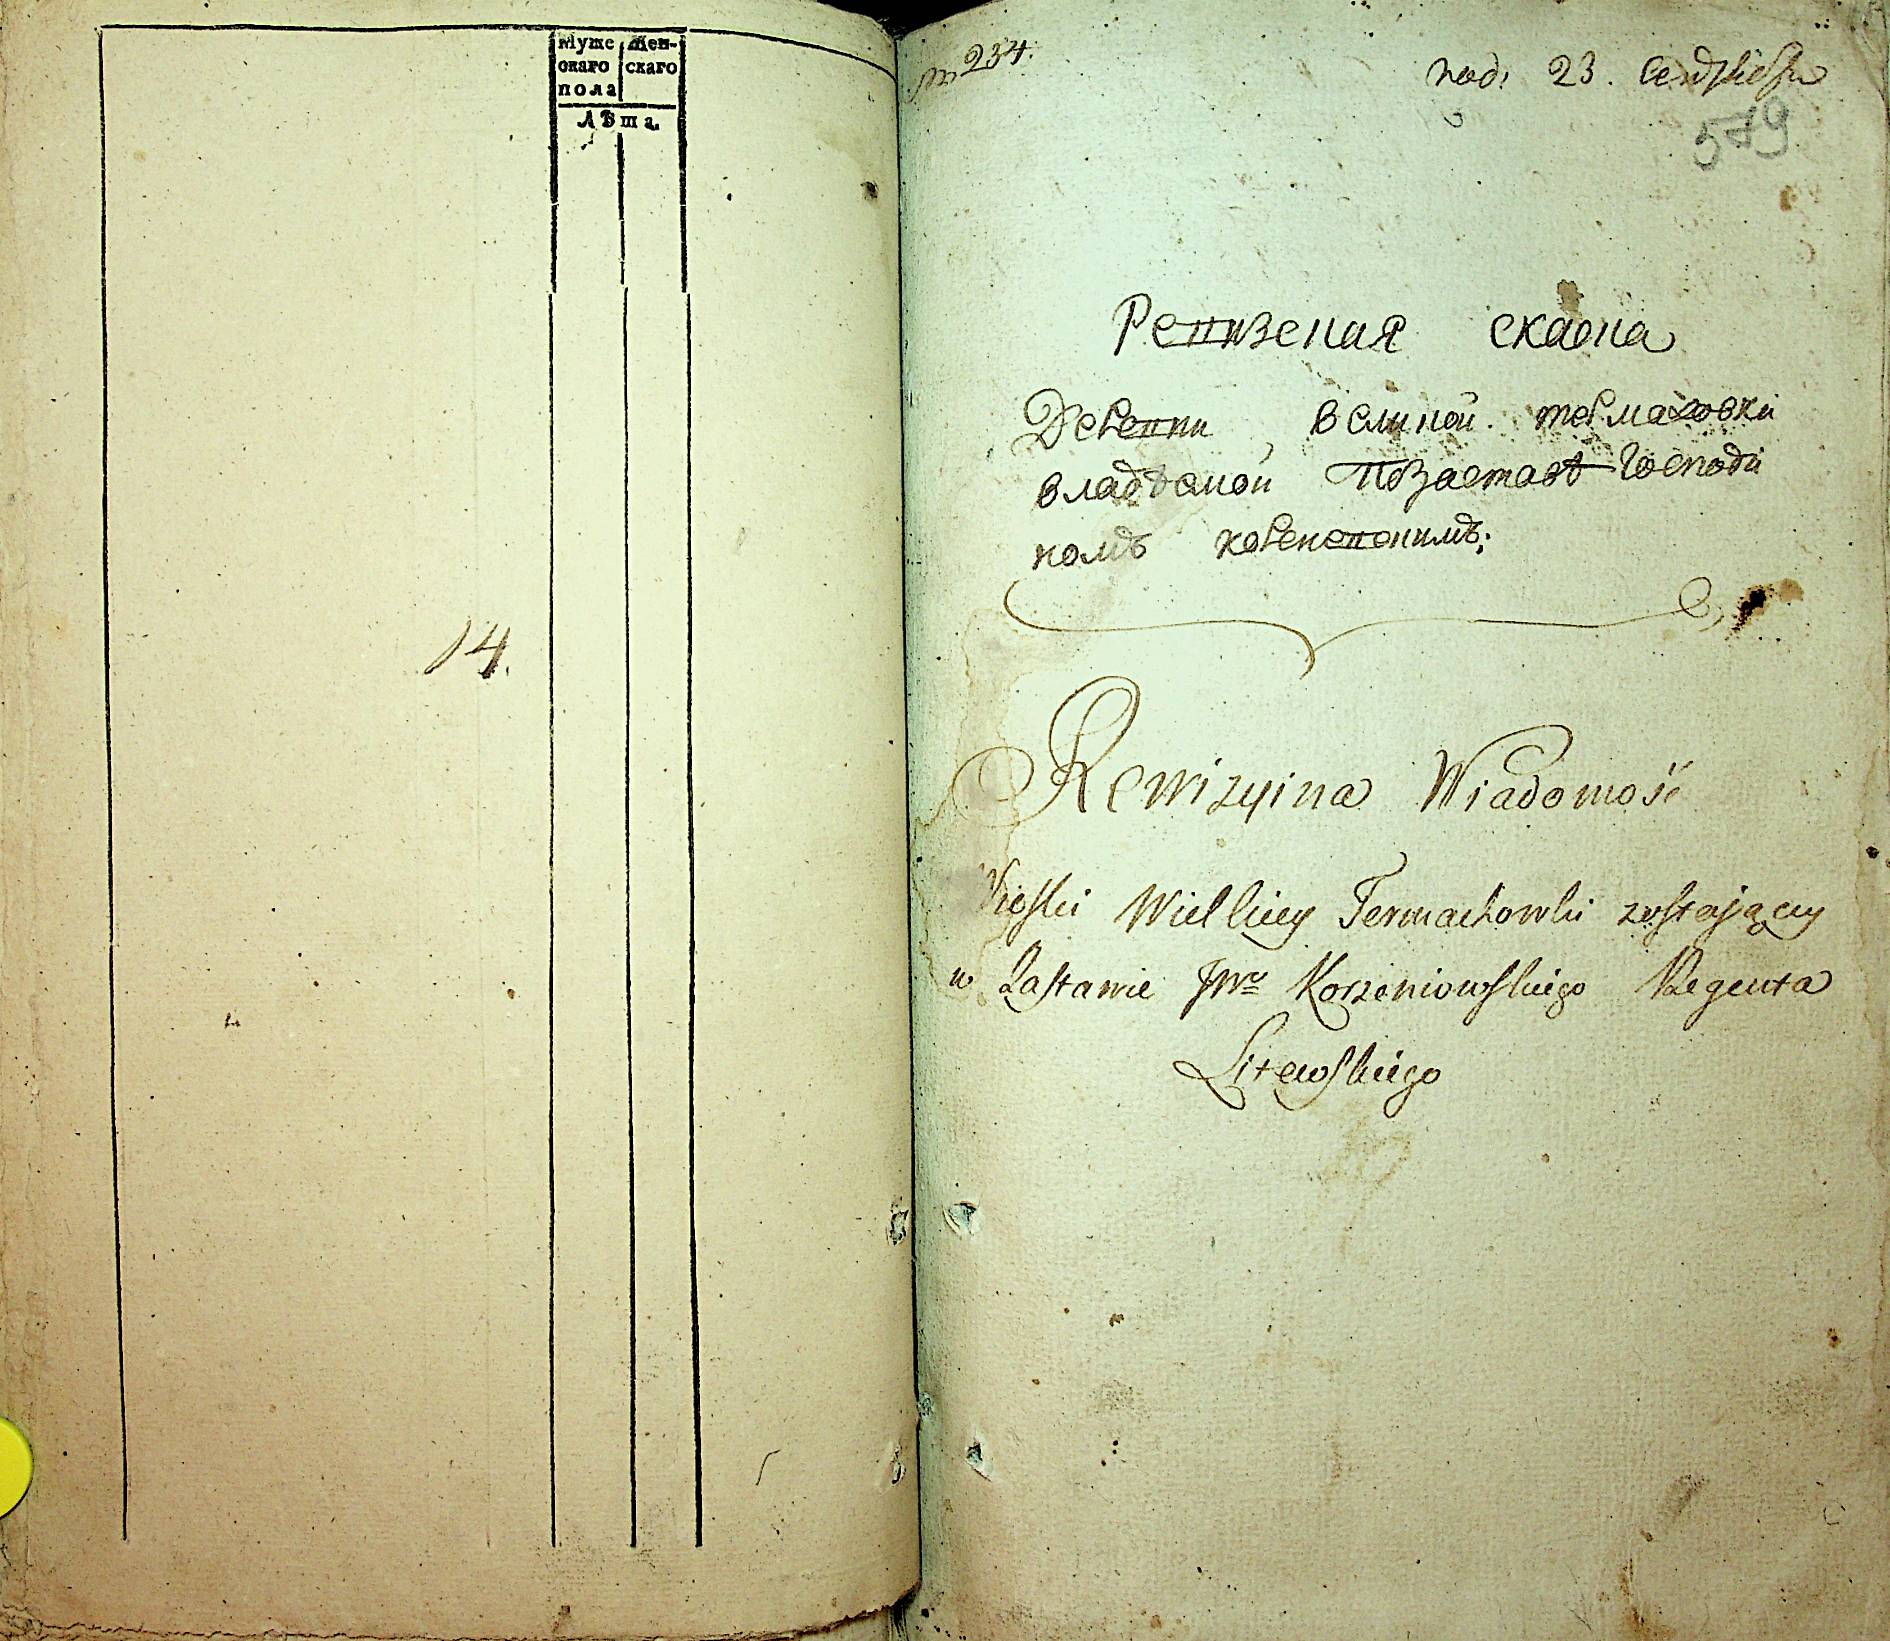 Муже Жен-
скаго скаго
пола
Лѣта.
14.
№ 234.
под: 23. Сентебра
579
Ревизская скаска
Деревни велικой термаховки
владѣемой По заставѣ Господи
номъ корженевскимъ;
Rewizyina Wiadomość
Wioski Wielkiey Termachowki zostaiącey
w Zastawie JWo Korzeniowskiego Regenta
Litewskiego